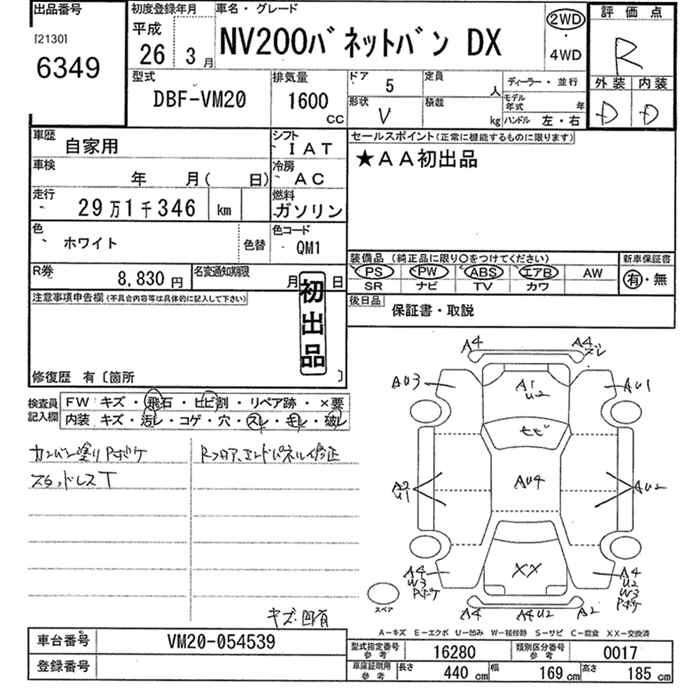 出品番号
[2130]
6349
初度登録年月
平成
26 3月
車名・グレード
NV200バネットバン DX
2WD
・
4WD
評価点
R
外装 内装
D D
型式
DBF-VM20
排気量
1600
cc
ドア 5
形状 V
定員 人
積載 kg
ディーラー・並行
モデル年式 年
ハンドル 左・右
車歴 自家用
シフト IAT
車検 年 月( 日)
冷房 AC
走行 29万1千346 km
燃料 ガソリン
色 ホワイト
色替
色コード QM1
R券 8,830円
名変通知期限 月 日
セールスポイント(正常に機能するものに限ります)
★AA初出品
装備品(純正品に限り○をつけてください)
PS PW ABS エアB AW
SR ナビ TV カワ
新車保証書
有・無
後日品 保証書・取説
注意事項申告欄(不具合内容等は具体的に記入して下さい)
初出品
修復歴 有〔箇所 〕
検査員記入欄
FW キズ・飛石・ヒビ割・リペア跡・×要
内装 キズ・汚レ・コゲ・穴・スレ・モレ・破レ
カンバン塗りPボケ
スタッドレスT
Rフロア、エンドパネル修正
キズ凹有
A4
A4
ズレ
A03
A1
U2
AU1
ヒビ
A2
U1
AU4
AU2
XX
A4
W3
Pボケ
A4
U2
W3
Pボケ
A4
A4U2
A2
スペア
A-キズ E-エクボ U-凹み W-補修跡 S-サビ C-腐食 XX-交換済
車台番号 VM20-054539
登録番号
型式指定番号 参考 16280
類別区分番号 参考 0017
車庫証明用 参考
長さ 440cm
幅 169cm
高さ 185cm